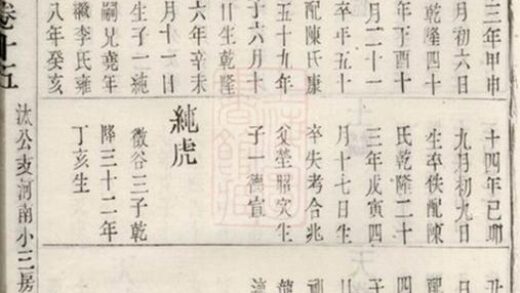 三年甲申
月初六日
乾隆四十
年丁酉十
月二十一
卒年五十
配陳氏康
五十九年
于六月十
日生乾隆
六年辛未
月十一日
生子一純
嗣兄堯年
繼李氏雍
八年癸亥
十四年己卯
九月初九日
生卒佚配陳
氏乾隆二十
三年戊寅四
月十七日生
卒失考合兆
父塋昭穴生
子一德宣
純虎
徵谷三子乾
隆三十二年
丁亥生
卷十五
汰公支河南小三房